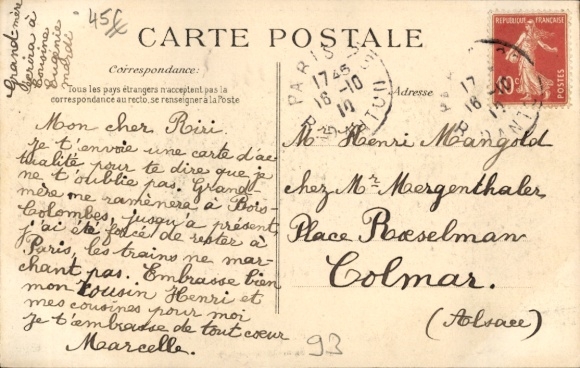 Grand-mère
écrira à
Cousine
Eugénie
mardi
45
CARTE POSTALE
Correspondance:
Tous les pays étrangers n'acceptent pas la
correspondance au recto, se renseigner à la Poste
Adresse
Mon cher Riri.
Je t'envoie une carte d'ac
tualité pour te dire que je
ne t'oublie pas. Grand-
mère me ramènera à Bois-
Colombes, jusqu'à présent,
j'ai été forcé de rester à
Paris, les trains ne mar-
chant pas. Embrasse bien
mon Cousin Henri et
mes cousines pour moi
Je t'embrasse de tout cœur
Marcelle.
Mr Henri Mangold
chez Mr. Mergenthaler
Place Rœselman
Colmar.
(Alsace)
93
REPUBLIQUE FRANÇAISE
10c
PARIS
1745
16-10
10
R. DANTON
PARIS
17
16-10
10
R. DANTON